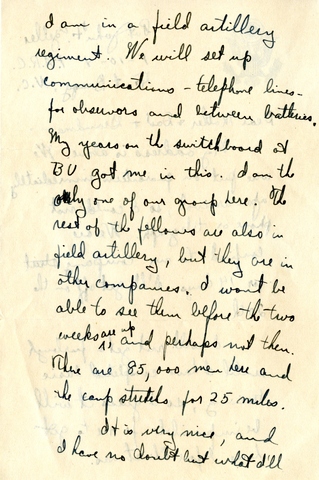 I am in a field artillery
regiment. We will set up
communications - telephone lines -
for observors and between batteries.
My years on the switchboard at
BU got me in this. I am the
only one of our group here. The
rest of the fellows are also in
field artillery, but they are in
other companies. I won't be
able to see them before the two
weeks are up, and perhaps not then.
There are 85,000 men here and
the camp stretches for 25 miles.
It is very nice, and
I have no doubt but what I'll